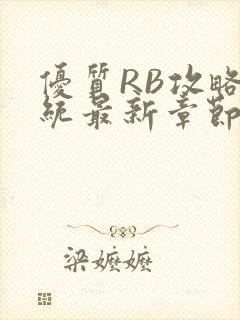 優質RB攻略
統最新章節
梁嬤嬤